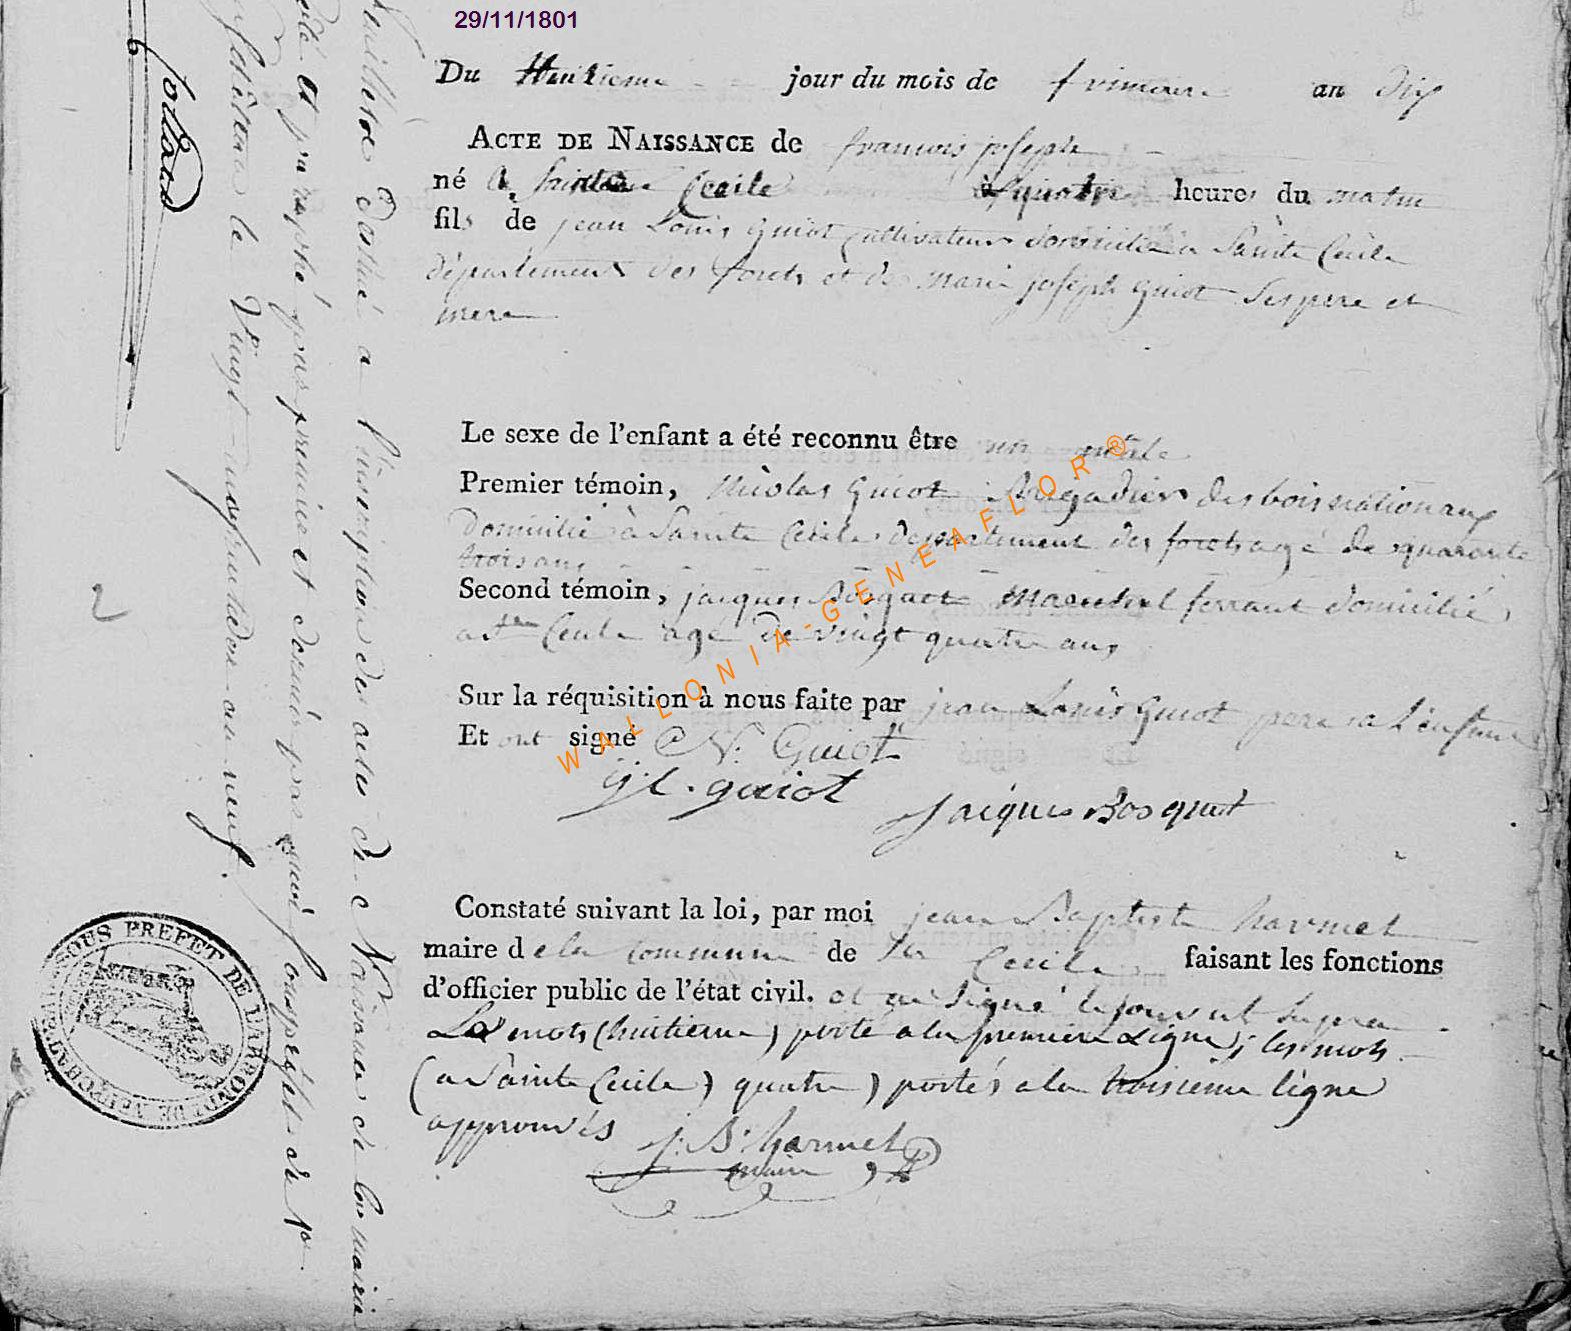 29/11/1801
Du Huitieme jour du mois de frimaire an dix
ACTE DE NAISSANCE de francois joseph
né a Sainte Cecile à quatre heures du matin
fils de jean Louis guiot cultivateur domicilié a Sainte Cecile
département des forets et de marie joseph guiot ses pere et
mere
Le sexe de l'enfant a été reconnu être un mâle
Premier témoin, nicolas guiot Brigadier des bois nationaux
domicilié à Sainte Cecile departement des forets agé de quarante
trois ans
Second témoin, jacques Bosquet marechal ferrant domicilié
a Ste Cecile agé de vingt quatre ans
Sur la réquisition à nous faite par jean Louis guiot pere a l'enfant
Et ont signé N. Guiot
j l. guiot
jaiques Bosquet
Constaté suivant la loi, par moi jean Baptiste harmel
maire de la commune de Ste Cecile faisant les fonctions
d'officier public de l'état civil. et ai signé le jour ut supra
Les mots (huitieme) porté a la premiere Ligne; les mots
(a Sainte Cecile) quatre) portés a la troisieme ligne
approuvés
j. B. harmel
maire
feuilletoe Destiné a l'inscription des actes de Naissance de la mairie
et paraphé par premier et dernier par nous Sousprefet de l'a
le Vingt an neuf.
2
SOUS PREFET DE L'ARRONDT DE NEUFCHATEAU
WALLONIA-GENEAFLOR®